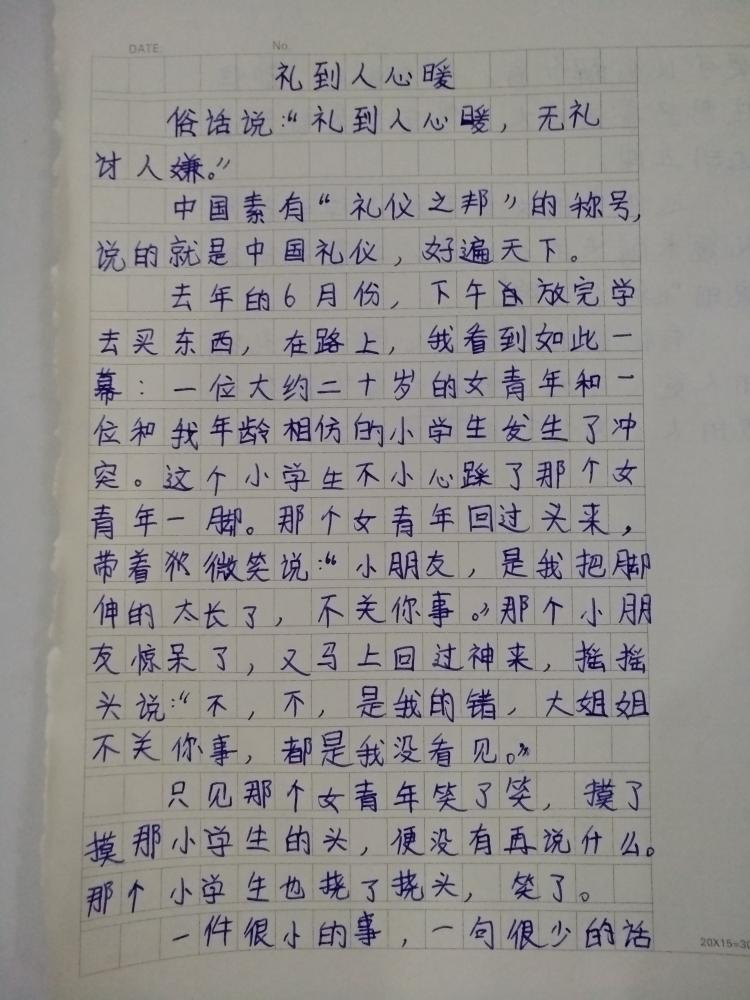 DATE:
No.
礼到人心暖
俗话说:“礼到人心暖，无礼
讨人嫌。”
中国素有“礼仪之邦”的称号，
说的就是中国礼仪，好遍天下。
去年的6月份，下午放完学
去买东西，在路上，我看到如此一
幕：一位大约二十岁的女青年和一
位和我年龄相仿的小学生发生了冲
突。这个小学生不小心踩了那个女
青年一脚。那个女青年回过头来，
带着微笑说:“小朋友，是我把脚
伸的太长了，不关你事。”那个小朋
友惊呆了，又马上回过神来，摇摇
头说:“不，不，是我的错，大姐姐
不关你事，都是我没看见。”
只见那个女青年笑了笑，摸了
摸那小学生的头，便没有再说什么。
那个小学生也挠了挠头，笑了。
一件很小的事，一句很少的话